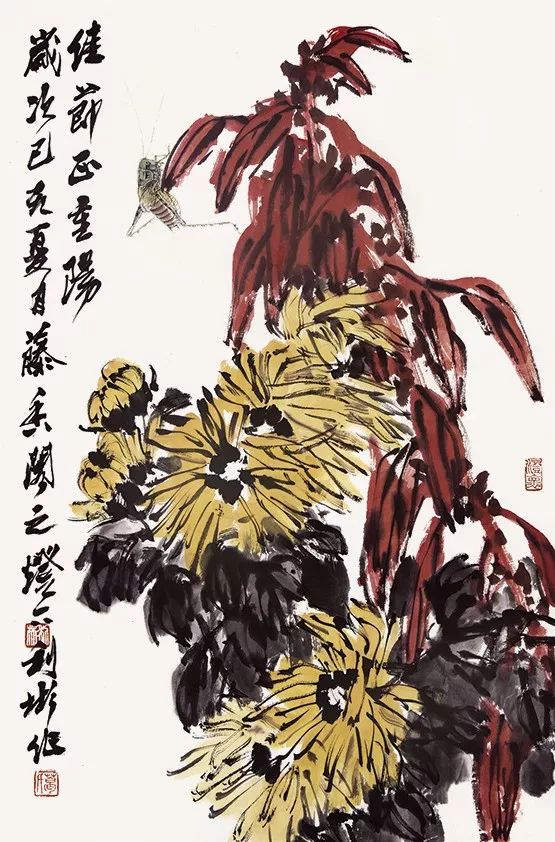 佳節正重陽
歲次己亥夏月藤香閣之燈下利彬作